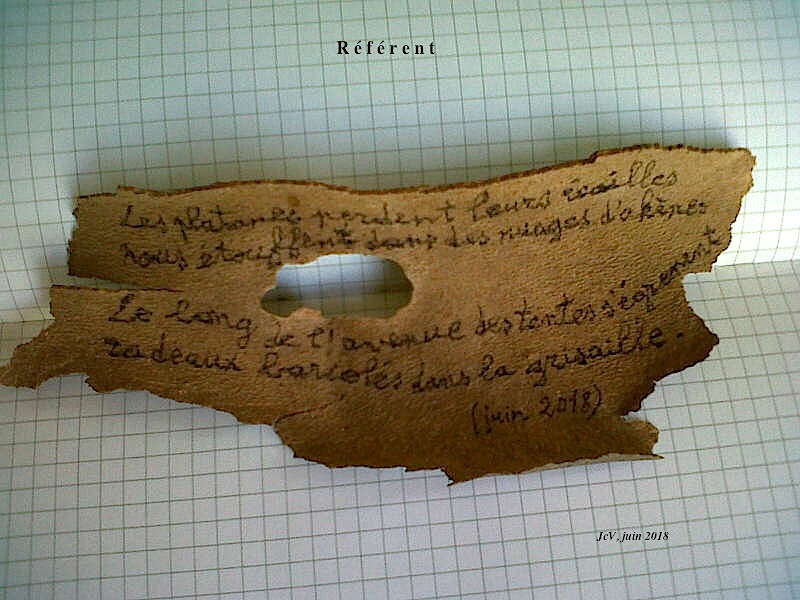 Référent
Les platanes perdent leurs écailles
nous étouffent dans des nuages d'akènes
Le long de l'avenue des tentes s'égrènent
radeaux bariolés dans la grisaille.
(juin 2018)
JcV, juin 2018